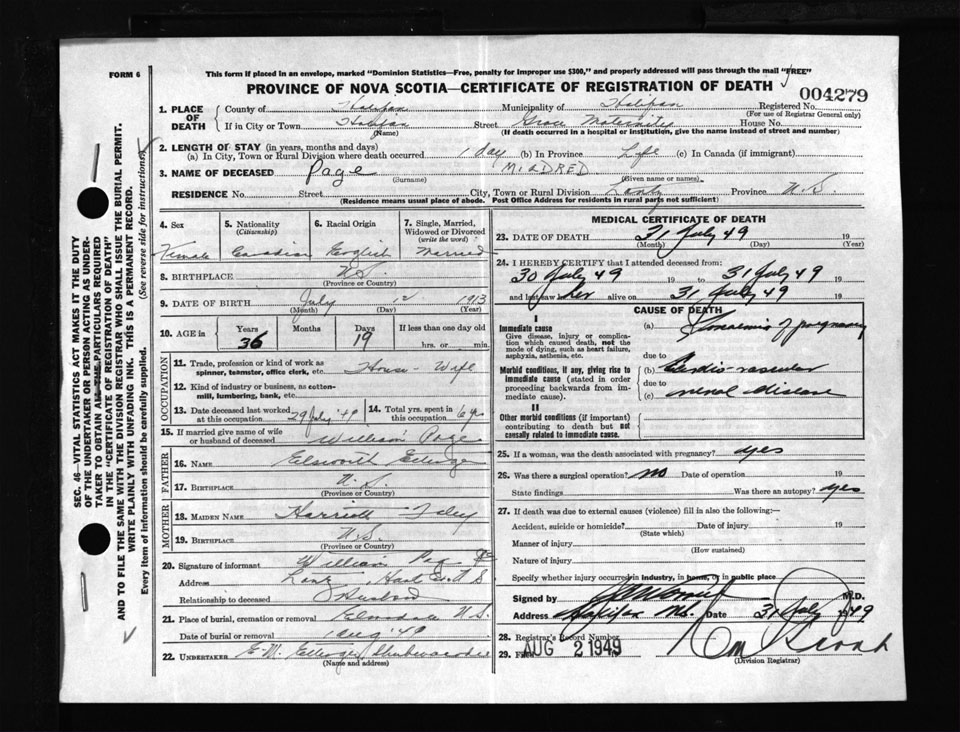 FORM 6
This form if placed in an envelope, marked "Dominion Statistics—Free, penalty for improper use $300," and properly addressed will pass through the mail "FREE"
PROVINCE OF NOVA SCOTIA—CERTIFICATE OF REGISTRATION OF DEATH
004279
1. PLACE OF DEATH
County of Halifax Municipality of Halifax Registered No.
(For use of Registrar General only)
If in City or Town Halifax Street Grace Maternity House No.
(Name) (If death occurred in a hospital or institution, give the name instead of street and number)
2. LENGTH OF STAY (in years, months and days)
(a) In City, Town or Rural Division where death occurred 1 day (b) In Province Life (c) In Canada (if immigrant)
3. NAME OF DECEASED Page MILDRED
(Surname) (Given name or names)
RESIDENCE No. Street City, Town or Rural Division Province N.S.
(Residence means usual place of abode. Post Office Address for residents in rural parts not sufficient)
4. Sex Female
5. Nationality (Citizenship) Canadian
6. Racial Origin English
7. Single, Married, Widowed or Divorced (write the word) Married
8. BIRTHPLACE N.S.
(Province or Country)
9. DATE OF BIRTH July 12 1913
(Month) (Day) (Year)
10. AGE in Years 36 Months Days 19 If less than one day old
hrs. or min.
OCCUPATION
11. Trade, profession or kind of work as spinner, teamster, office clerk, etc. House-Wife
12. Kind of industry or business, as cotton-mill, lumbering, bank, etc.
13. Date deceased last worked at this occupation 29 July '49
14. Total yrs. spent in this occupation 6 yrs
15. If married give name of wife or husband of deceased William Page
FATHER
16. NAME Elsworth
17. BIRTHPLACE N.S.
(Province or Country)
MOTHER
18. MAIDEN NAME Harriett
19. BIRTHPLACE N.S.
(Province or Country)
20. Signature of informant William Page
Address
Relationship to deceased Husband
21. Place of burial, cremation or removal Elmsdale N.S.
Date of burial or removal 1 Aug '49
22. UNDERTAKER E.M.
(Name and address)
MEDICAL CERTIFICATE OF DEATH
23. DATE OF DEATH 31 July 49
(Month) (Day) (Year)
24. I HEREBY CERTIFY that I attended deceased from:
30 July 49 19 to 31 July 49 19
and last saw her alive on 31 July 49 19
CAUSE OF DEATH
I
Immediate cause
Give disease, injury or complication which caused death, not the mode of dying, such as heart failure, asphyxia, asthenia, etc.
(a) Toxaemia of pregnancy
due to
Morbid conditions, if any, giving rise to immediate cause (stated in order proceeding backwards from immediate cause).
(b) Cardio-vascular
due to
(c) renal disease
II
Other morbid conditions (if important) contributing to death but not causally related to immediate cause.
25. If a woman, was the death associated with pregnancy? yes
26. Was there a surgical operation? no Date of operation 19
State findings Was there an autopsy? yes
27. If death was due to external causes (violence) fill in also the following:—
Accident, suicide or homicide? Date of injury 19
(State which)
Manner of injury
(How sustained)
Nature of injury
Specify whether injury occurred in industry, in home, or in public place
Signed by M.D.
Address Halifax Date 31 July 1949
28. Registrar's Record Number
29. Filed AUG 2 1949
(Division Registrar)
SEC. 46—VITAL STATISTICS ACT MAKES IT THE DUTY OF THE UNDERTAKER OR PERSON ACTING AS UNDERTAKER TO OBTAIN ALL THE PARTICULARS REQUIRED IN THE "CERTIFICATE OF REGISTRATION OF DEATH"
AND TO FILE THE SAME WITH THE DIVISION REGISTRAR WHO SHALL ISSUE THE BURIAL PERMIT.
WRITE PLAINLY WITH UNFADING INK. THIS IS A PERMANENT RECORD.
Every item of information should be carefully supplied. (See reverse side for instructions)